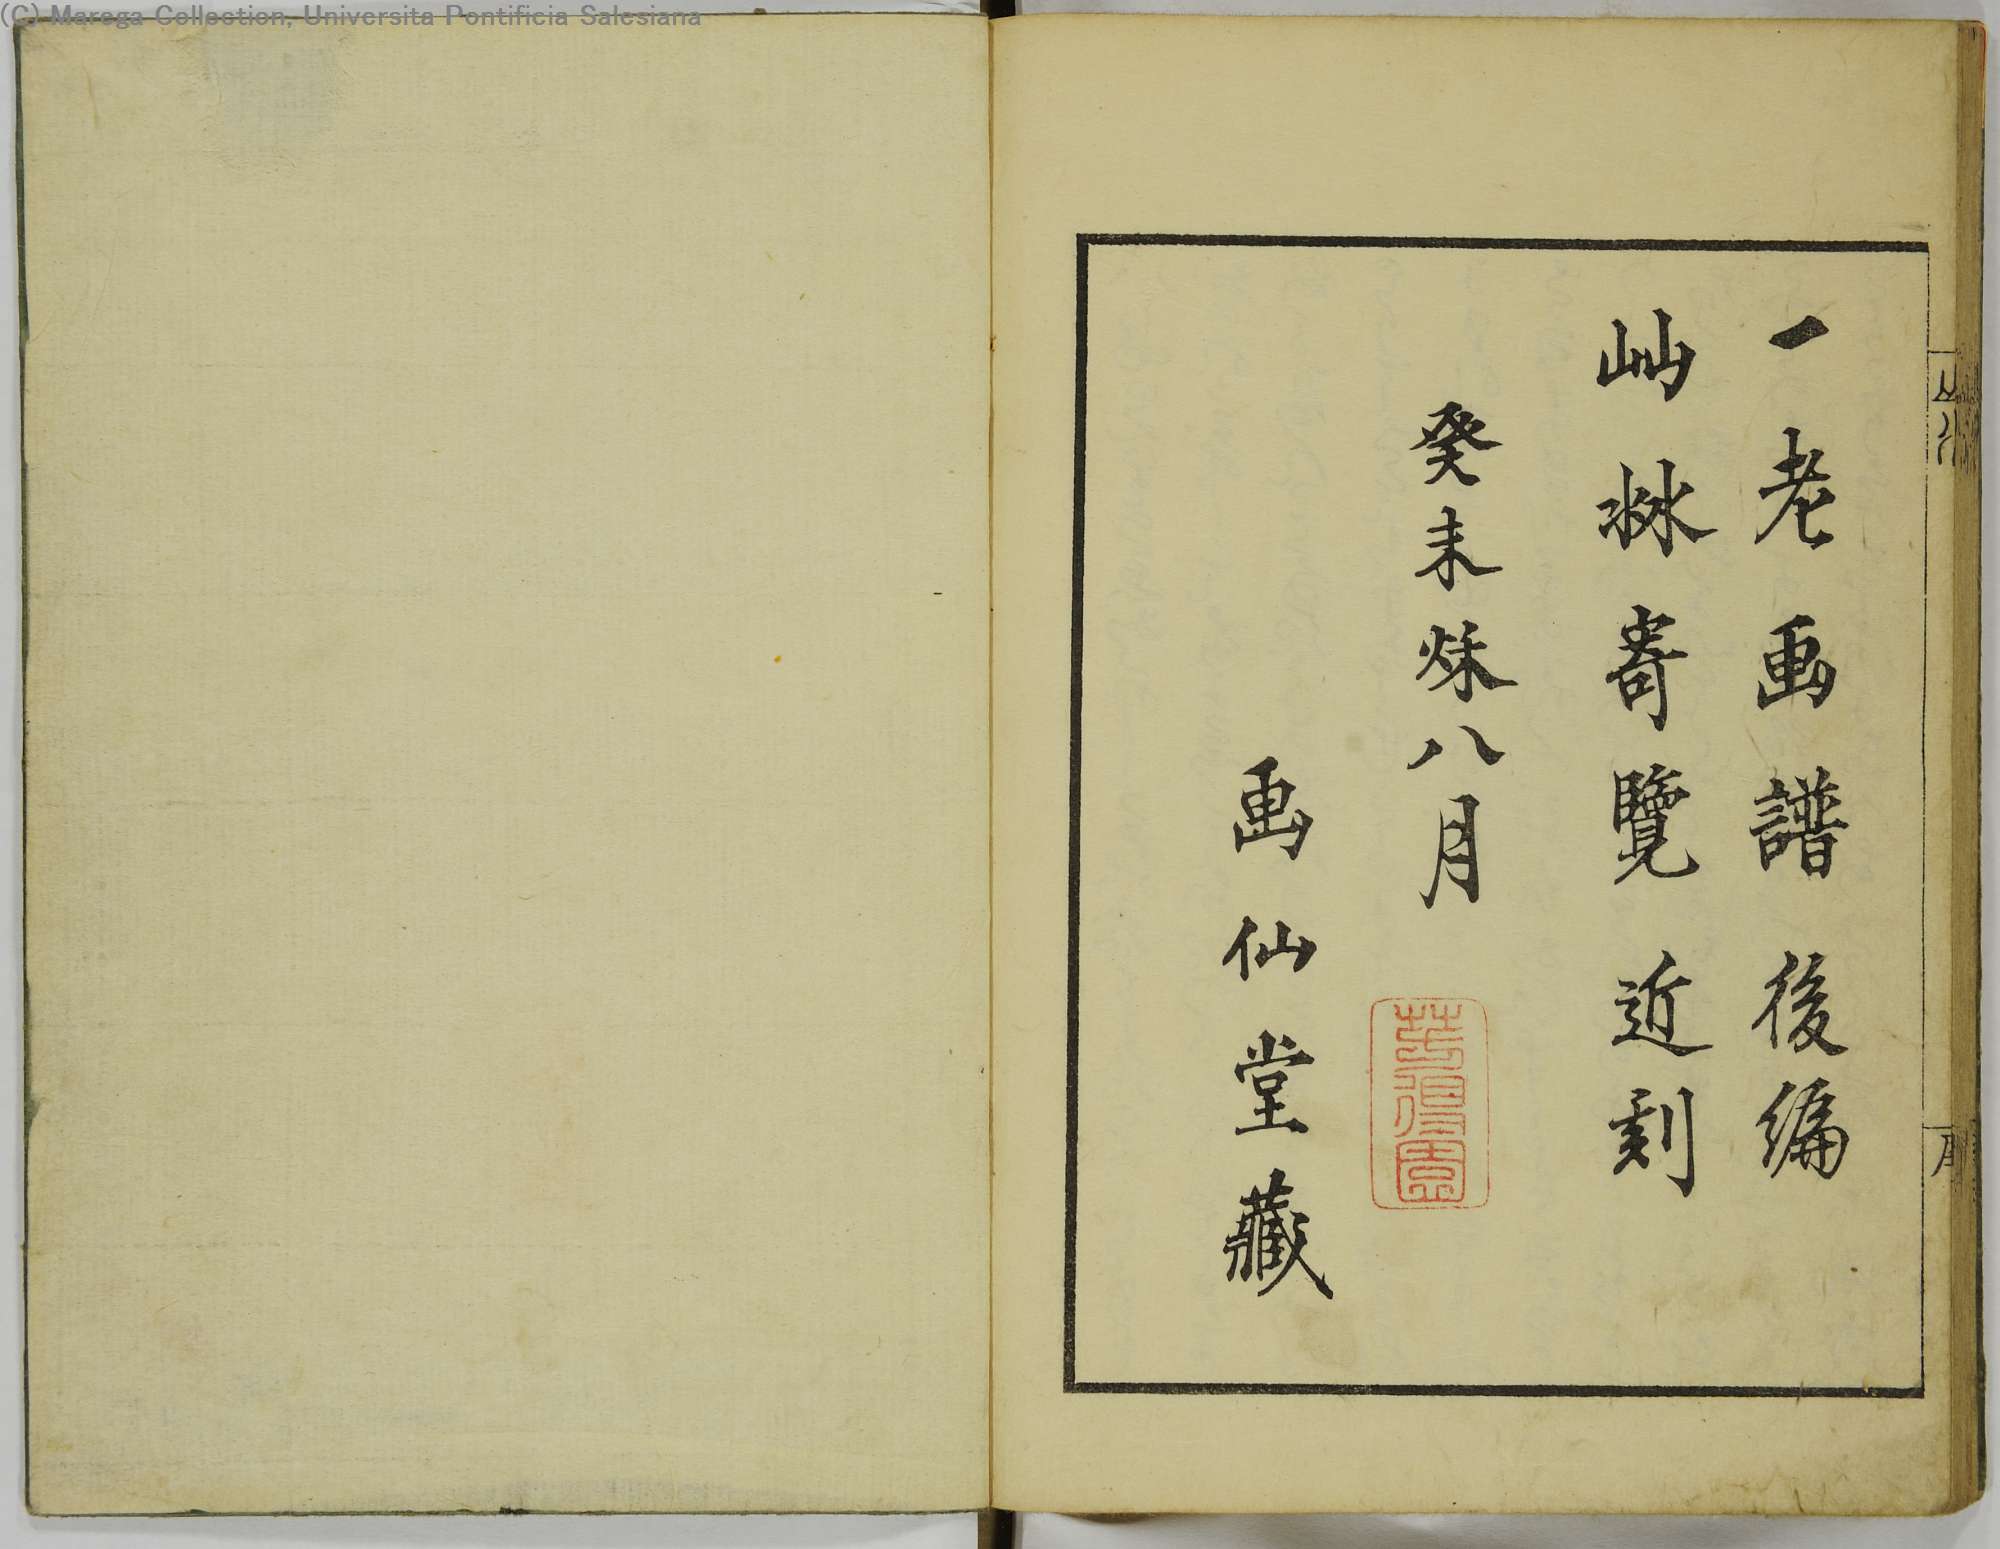 (C) Marega Collection, Universita Pontificia Salesiana
一老画譜後編
山水寄覽近刻
癸未秌八月
画仙堂藏